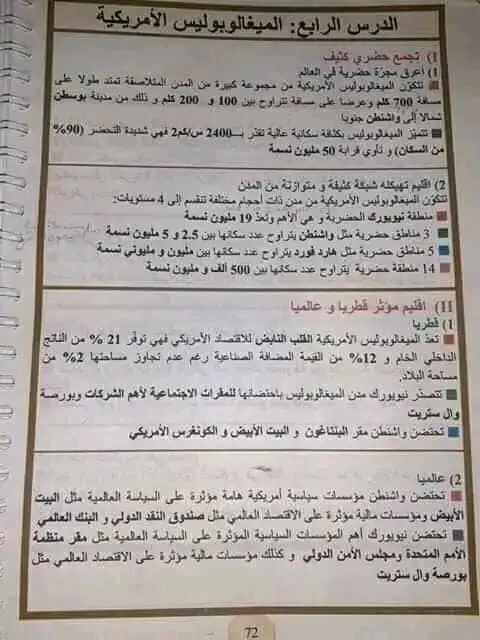 الدرس الرابع: الميغالوبوليس الأمريكية
I) تجمع حضري كثيف
1) أعرق مجرّة حضرية في العالم
تتكوّن الميغالوبوليس الأمريكية من مجموعة كبيرة من المدن المتلاصقة تمتد طولا على
مسافة 700 كلم وعرضا على مسافة تتراوح بين 100 و 200 كلم و ذلك من مدينة بوسطن
شمالا إلى واشنطن جنوبا
تتميّز الميغالوبوليس بكثافة سكانية عالية تقدّر بـ2400 س/كم2 فهي شديدة التحضر (90%
من السكان) و تأوي قرابة 50 مليون نسمة
2) اقليم تهيكله شبكة كثيفة و متوازنة من المدن
تتكوّن الميغالوبوليس الأمريكية من مدن ذات أحجام مختلفة تنقسم إلى 4 مستويات:
منطقة نيويورك الحضرية و هي الأهم وتعدّ 19 مليون نسمة
3 مناطق حضرية مثل واشنطن يتراوح عدد سكانها بين 2.5 و 5 مليون نسمة
5 مناطق حضرية مثل هارد فورد يتراوح عدد سكانها بين مليون و مليوني نسمة
14 منطقة حضرية يتراوح عدد سكانها بين 500 ألف و مليون نسمة
II) اقليم مؤثر قطريا و عالميا
1) قطريا
تعدّ الميغالوبوليس الأمريكية القلب النابض للاقتصاد الأمريكي فهي توفّر 21 % من الناتج
الداخلي الخام و 12% من القيمة المضافة الصناعية رغم عدم تجاوز مساحتها 2% من
مساحة البلاد.
تتصدّر نيويورك مدن الميغالوبوليس باحتضانها للمقرات الاجتماعية لأهم الشركات وبورصة
وال ستريت
تحتضن واشنطن مقر البنتاغون و البيت الأبيض و الكونغرس الأمريكي
2) عالميا
تحتضن واشنطن مؤسسات سياسية أمريكية هامة مؤثرة على السياسة العالمية مثل البيت
الأبيض ومؤسسات مالية مؤثرة على الاقتصاد العالمي مثل صندوق النقد الدولي و البنك العالمي
تحتضن نيويورك أهم المؤسسات السياسية المؤثرة على السياسة العالمية مثل مقر منظمة
الأمم المتحدة ومجلس الأمن الدولي و كذلك مؤسسات مالية مؤثرة على الاقتصاد العالمي مثل
بورصة وال ستريت
72